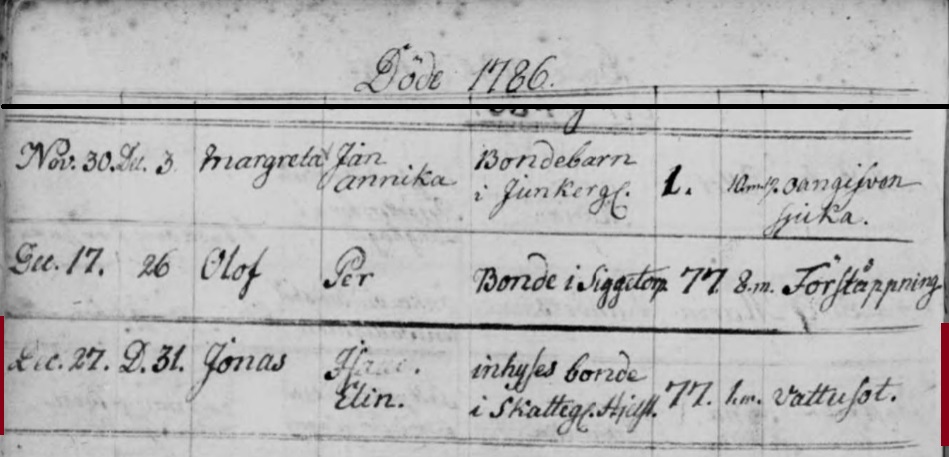 Döde 1786.
Nov. 30. Dec. 3. Margreta Jan Bondebarn 1. 10m. oangifven
Annika i Junkerg. sjuka.
Dec. 17. 26 Olof Per Bonde i Siggetorp 77. 8.m. Förståppning
Dec. 27. D. 31. Jonas inhyses bonde 77. 1.m. Vattusot.
Elin. i Skatteg.